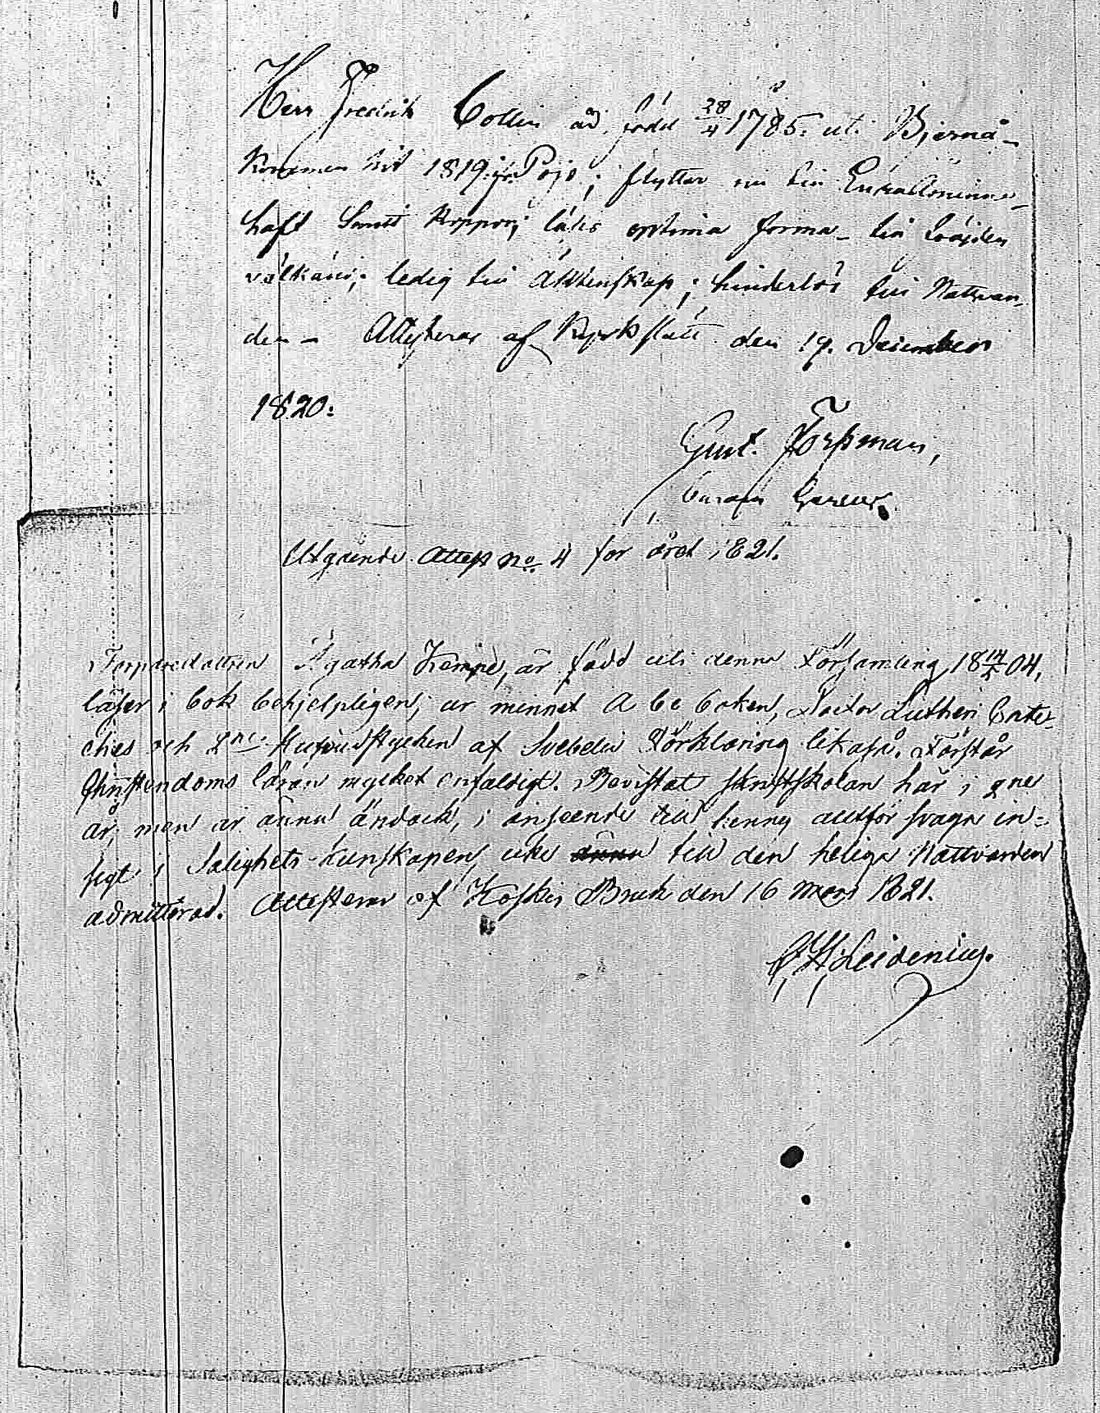 Herr Fredrik Collin är född 28/4 1785. uti Bjernå –
Kommen hit 1819. fr. Pojo; flyttar nu till
haft läser optima forma – till
välkänd; ledig till Äktenskap; hinderlös till Nattvar-
den – Attesterar af Kyrkslätt den 19. December
1820:
Gust. Forssman,
Utgående Attest No. 4 för året 1821.
Torpardottren Agatha Kempe, är född uti denna Församling 18 14/5 04,
läser i bok behjelpligen; ur minnet A be boken, Doctor Lutheri Cate-
ches och 2ne Hufvudstycken af Svebelii Förklaring likaså. Förstår
Christendoms läran mycket enfaldigt. Bevistat skriftskolan här i 2ne
år, men är ännu ändock, i anseende till hennes alltför svaga in-
sigt i Salighets-kunskapen, icke ännu till den heliga Nattvarden
admitterad. Attesterar af Koskis Bruk den 16 Mars 1821.
Leidenius.